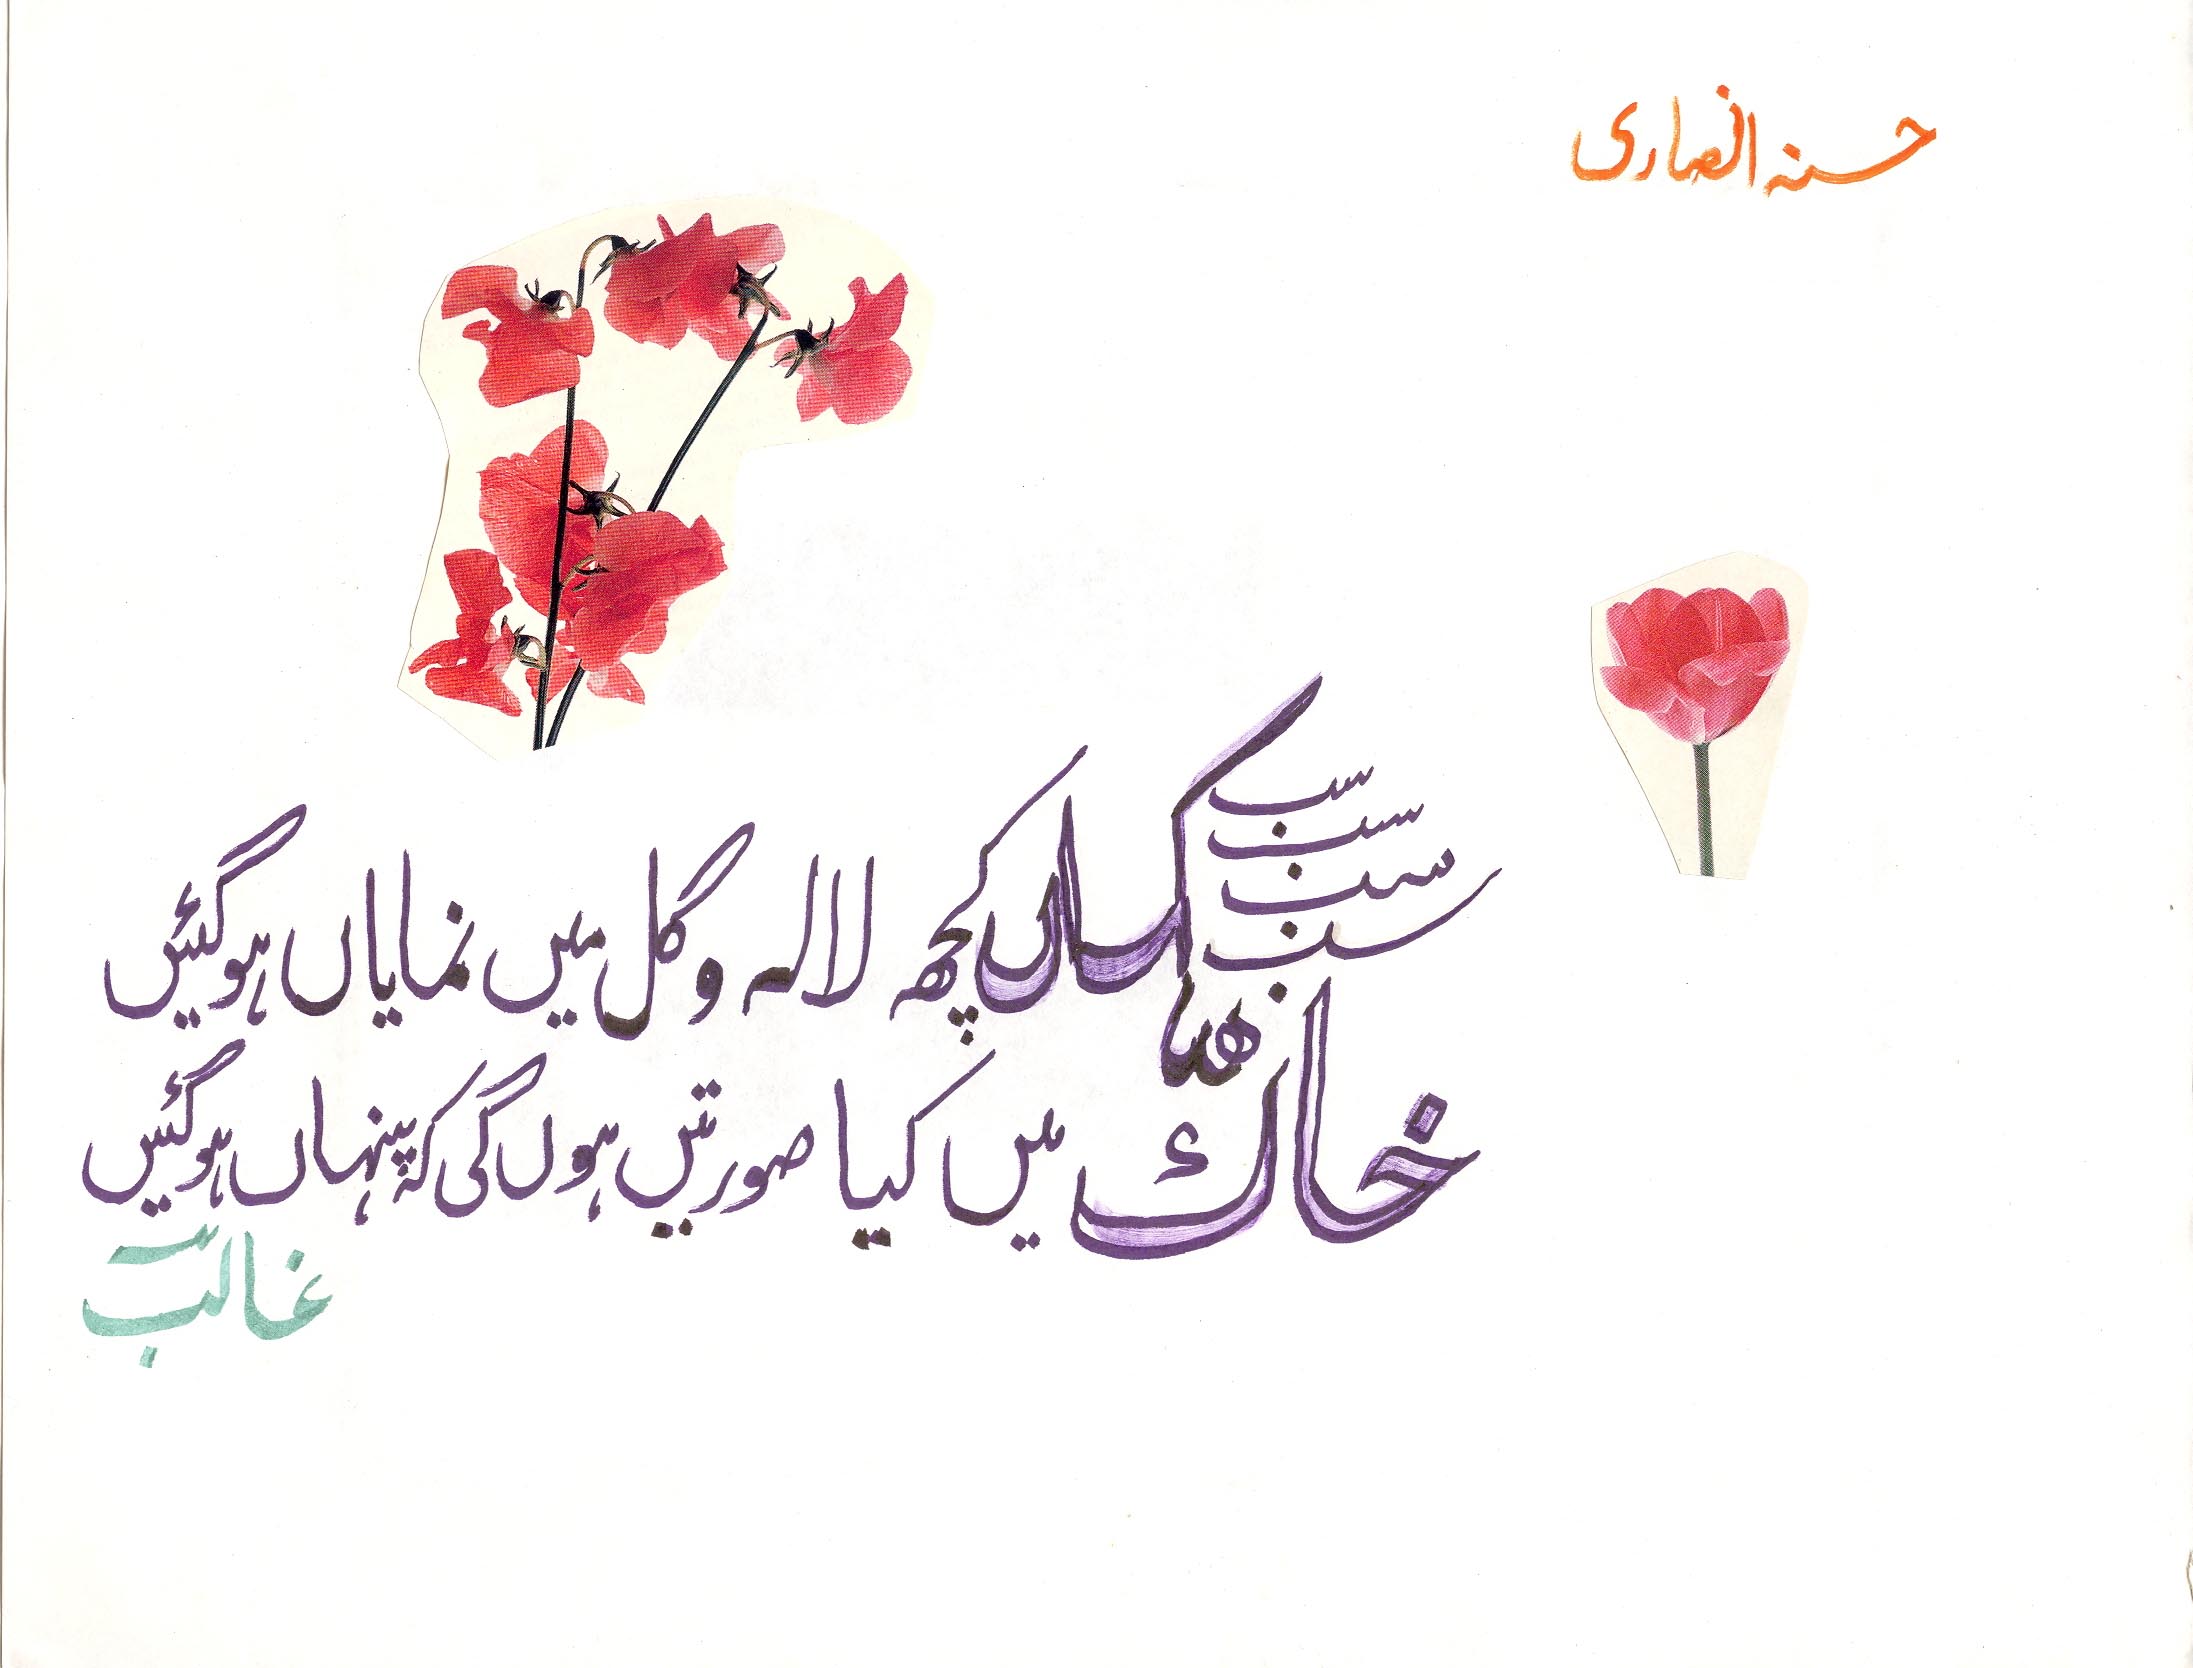 حسنہ انصاری
سب
سب
سب
سب کہاں کچھ لالہ و گل میں نمایاں ہو گئیں
خاک میں کیا صورتیں ہوں گی کہ پنہاں ہو گئیں
غالب